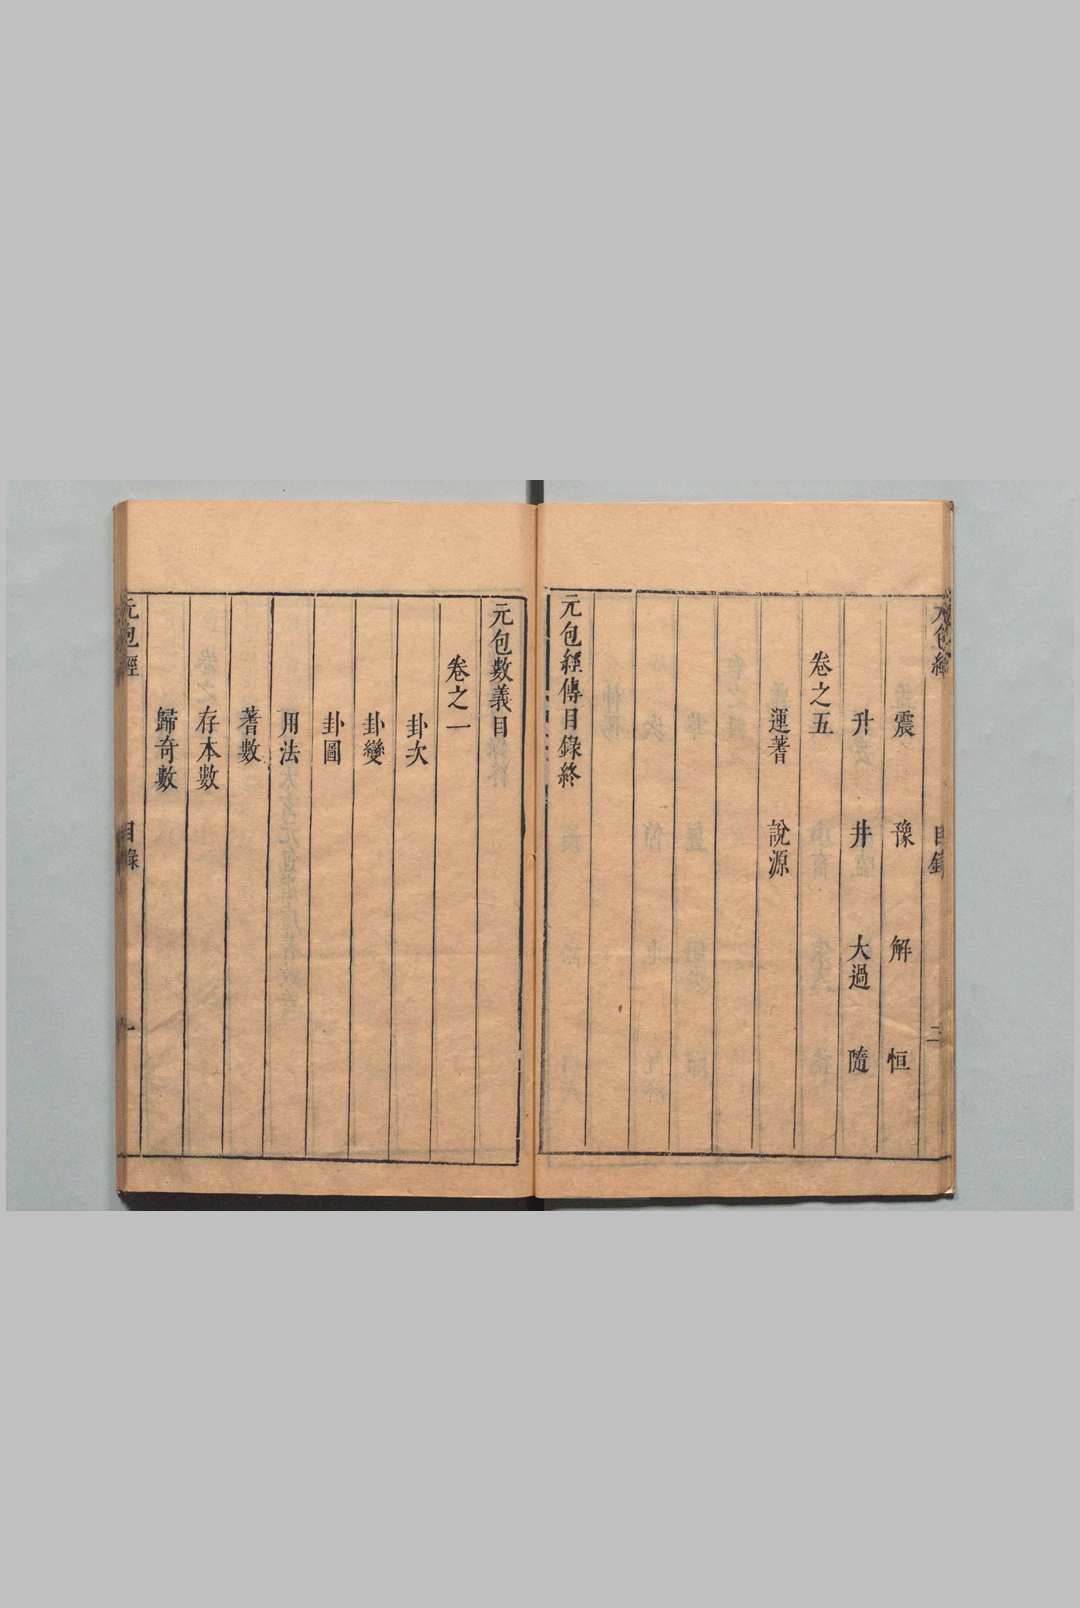 元包經
目錄
二
震 豫 解 恒
升 井 大過 隨
卷之五
運蓍 說源
元包經傳目錄終
元包數義目
卷之一
卦次
卦變
卦圖
用法
蓍數
存本數
歸奇數
元包經
目錄